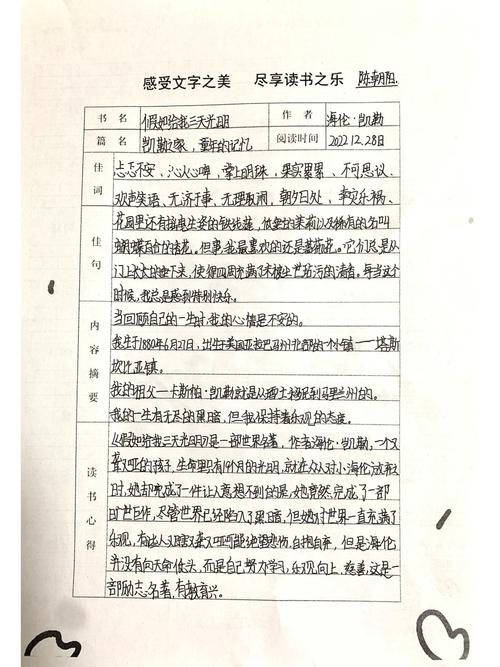 感受文字之美 尽享读书之乐 陈朝阳
书名 假如给我三天光明 作者 海伦·凯勒
篇名 凯勒之家,童年的记忆 阅读时间 2022.12.28日
佳词 忐忑不安、沁人心脾、掌上明珠、果实累累、不可思议、
欢声笑语、无济于事、无理取闹、朝夕相处、幸灾乐祸、
佳句 花园里还有摇曳生姿的铁线莲,做的茉莉以及稀有的名叫
蝴蝶百合的香花。但事,我最喜欢的还是蔷薇花。它们总是从
门上大大的垂下来,使得四周充满了未被尘世玷污的清香,每当这个
时候,我总是感到特别快乐。
内容摘要 当回顾自己的一生时,我的心情是不安的。
我生于1880年6月27日,出生于美国亚拉巴马州北部的一个小镇——塔斯
坎比亚镇。
我的祖父——卡斯帕·凯勒就是从瑞士移民到马里兰州的。
我的一生有无尽的黑暗,但我保持着乐观的态度。
读书心得 《假如给我三天光明》是一部世界名著,作者海伦·凯勒,一个又
聋又哑的孩子,生命里只有19个月的光明,就在众人对小海伦放弃
时,她却完成了一件让人意想不到的是,她竟然,完成了一部
旷世巨作,尽管世界已经陷入了黑暗,但她对世界一直充满了
乐观,有些人又瞎又聋又哑可能绝望悲伤,自抱自弃,但是海伦
并没有向天命低头,而是自己努力学习,乐观向上,慈善,这是一
部励志名著,有教育兴。